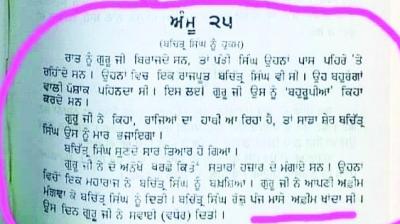 ਅੰਸੂ ੨੫
(ਬਚਿਤ੍ਰ ਸਿੰਘ ਨੂੰ ਹੁਕਮ)
ਰਾਤ ਨੂੰ ਗੁਰੂ ਜੀ ਬਿਰਾਜਦੇ ਸਨ, ਤਾਂ ਪੱਤੀ ਸਿੰਘ ਉਹਨਾਂ ਪਾਸ ਪਹਿਰੇ 'ਤੇ
ਰਹਿੰਦੇ ਸਨ । ਉਹਨਾਂ ਵਿਚ ਇਕ ਰਾਜਪੂਤ ਬਚਿਤ੍ਰ ਸਿੰਘ ਵੀ ਸੀ । ਉਹ ਬਹੁਰੰਗਾਂ
ਵਾਲੀ ਪੋਸ਼ਾਕ ਪਹਿਨਦਾ ਸੀ । ਇਸ ਲਈ ਗੁਰੂ ਜੀ ਉਸ ਨੂੰ 'ਬਹੁਰੂਪੀਆ' ਕਿਹਾ
ਕਰਦੇ ਸਨ ।
ਗੁਰੂ ਜੀ ਨੇ ਕਿਹਾ, ਰਾਜਿਆਂ ਦਾ ਹਾਥੀ ਆ ਰਿਹਾ ਹੈ, ਤਾਂ ਸਾਡਾ ਸ਼ੇਰ ਬਚਿੱਤ੍ਰ
ਸਿੰਘ ਉਸ ਨੂੰ ਮਾਰ ਭਜਾਇਗਾ ।
ਬਚਿਤ੍ਰ ਸਿੰਘ ਸੁਣਦੇ ਸਾਰ ਤਿਆਰ ਹੋ ਗਿਆ ।
ਗੁਰੂ ਜੀ ਨੇ ਦੋ ਅਨੋਖੇ ਬਰਛੇ ਕਿਤੋਂ ਸਤਾਰਾਂ ਹਜ਼ਾਰ ਦੇ ਮੰਗਾਏ ਸਨ । ਉਹਨਾਂ
ਵਿਚੋਂ ਇਕ ਮਹਾਰਾਜ ਨੇ ਬਚਿਤ੍ਰ ਸਿੰਘ ਨੂੰ ਬਖ਼ਸ਼ਿਆ । ਗੁਰੂ ਜੀ ਨੇ ਆਪਣੀ ਅਫ਼ੀਮ
ਮੰਗਵਾ ਕੇ ਬਚਿਤ੍ਰ ਸਿੰਘ ਨੂੰ ਦਿਤੀ । ਬਚਿਤ੍ਰ ਸਿੰਘ ਰੋਜ਼ ਪੰਜ ਮਾਸੇ ਅਫ਼ੀਮ ਖਾਂਦਾ ਸੀ ।
ਉਸ ਦਿਨ ਗੁਰੂ ਜੀ ਨੇ ਸਵਾਈ (ਵਧੇਰੇ) ਦਿਤੀ ।